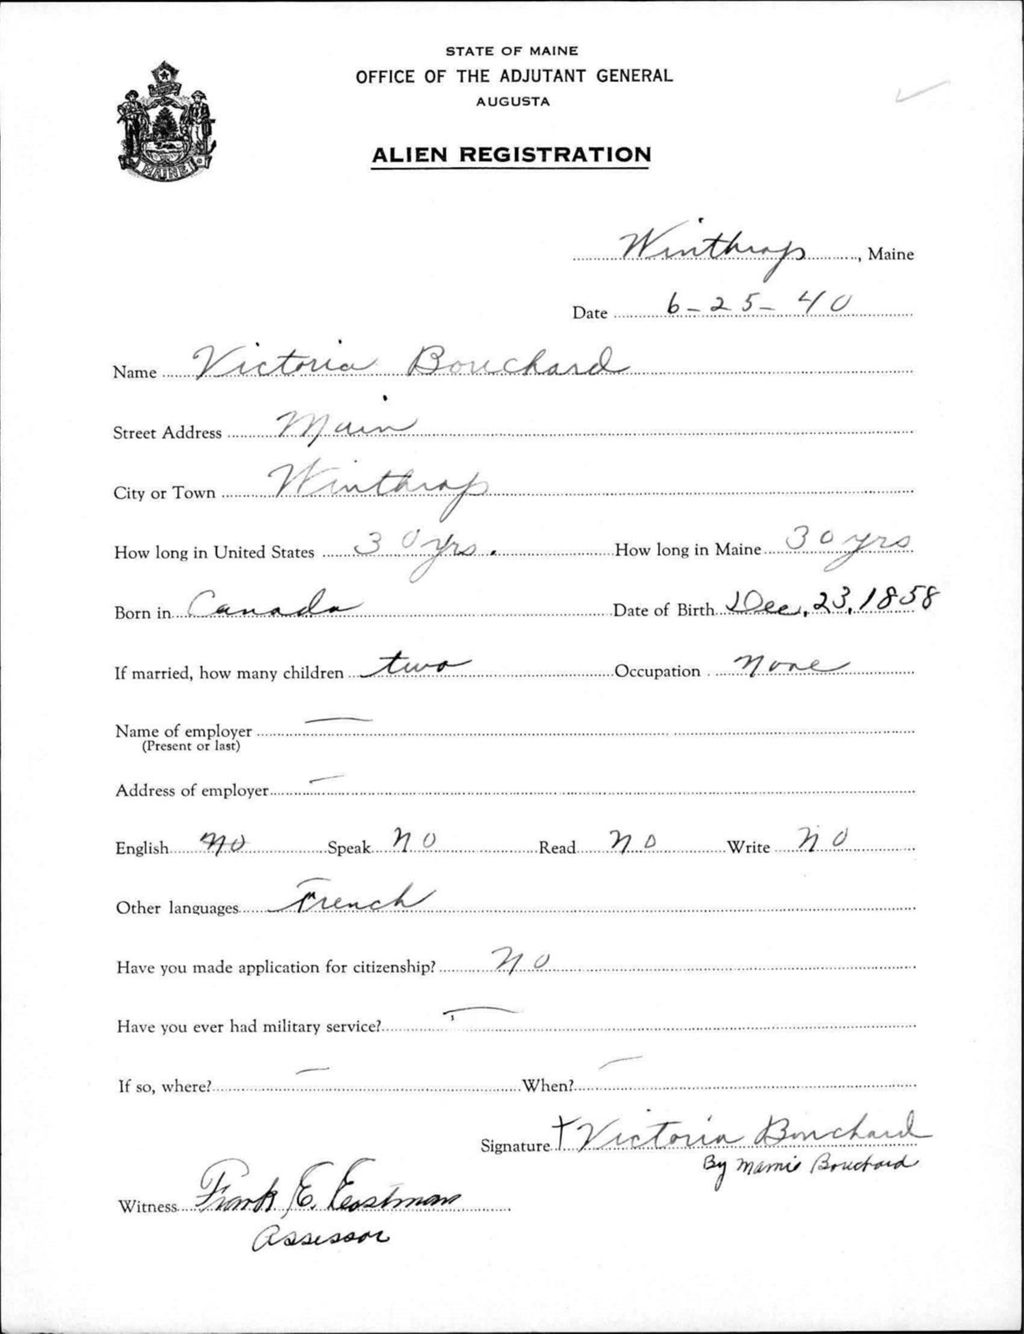 STATE OF MAINE
OFFICE OF THE ADJUTANT GENERAL
AUGUSTA
ALIEN REGISTRATION
MAINE
Winthrop, Maine
Date 6-25-40
Name Victoria Bouchard
Street Address Main
City or Town Winthrop
How long in United States 30 yrs. How long in Maine 30 yrs
Born in Canada Date of Birth Dec, 23, 1858
If married, how many children two Occupation None
Name of employer
(Present or last)
Address of employer
English No Speak No Read No Write No
Other languages French
Have you made application for citizenship? No
Have you ever had military service?
If so, where? When?
Signature Victoria Bouchard
By Mamie Bouchard
Witness Frank E. Eastman
Assessor